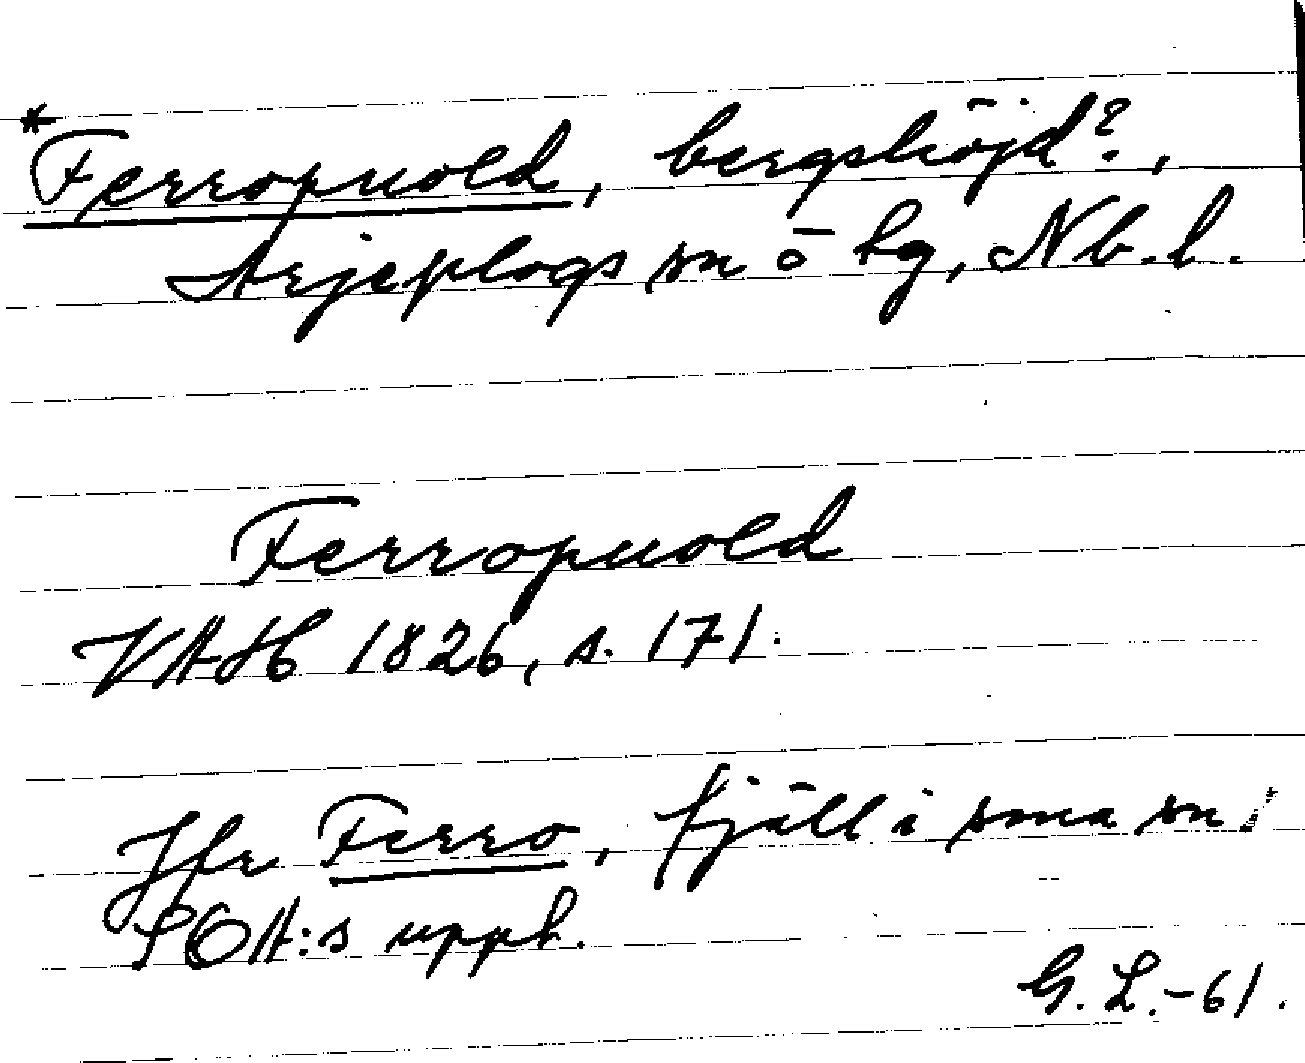 *Ferropuold, bergshöjd?,
Arjeplogs sn o hg, Nb.l.
Ferropuold
VAH 1826, s. 171.
Jfr Ferro, fjäll i sma sn i
SOA:s upph.
G. L.-61.